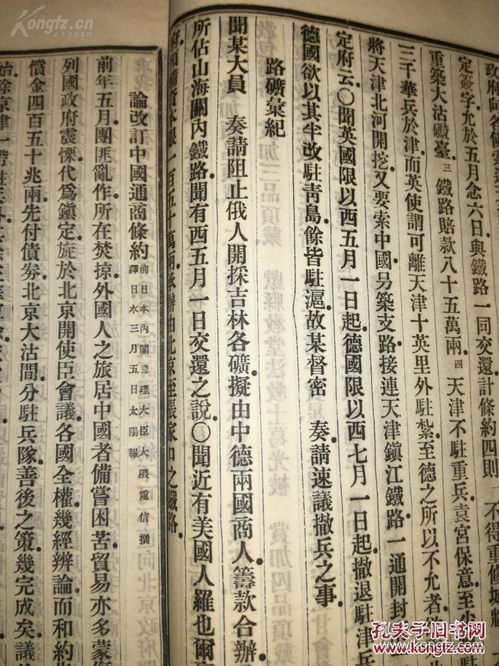 政府
不得重修城牆
定簽字允於五月念六日與錫一同交還計條約四則
重築大沽礮臺三鐵路賠款八十五萬兩四天津不駐重兵袁宮保意至
三千華兵於津而英使謂可離天津十英里外駐紮至德之所以不允者
將天津北河開挖又要索中國另築支路接連天津鎮江鐵路一通開封
定府云〇聞英國限以西五月一日起德國限以西七月一日起撤退駐津
德國欲以其半改駐靑島餘皆駐滬故某督密 奏請速議撤兵之事
路礦彙紀
聞某大員 奏請阻止俄人開採吉林各礦擬由中德兩國商人籌款合辦
所佔山海關內鐵路聞有西五月一日交還之說〇聞近有美國人羅也爾
一百五十萬兩承辦由北京至張家口之鐵路
論改訂中國通商條約 前日本內閣總理大臣大隈重信撰
譯日本三月五日太陽報
前年五月團匪亂作所在焚掠外國人之旅居中國者備嘗困苦貿易亦多蒙
列國政府震慄代爲鎮定旋於北京開使臣會議各國全權幾經辨論而和約
償金四百五十兆兩先付債劵北京大沽間分駐兵隊善後之策幾完成矣
孔夫子旧书网
Kongfz.com